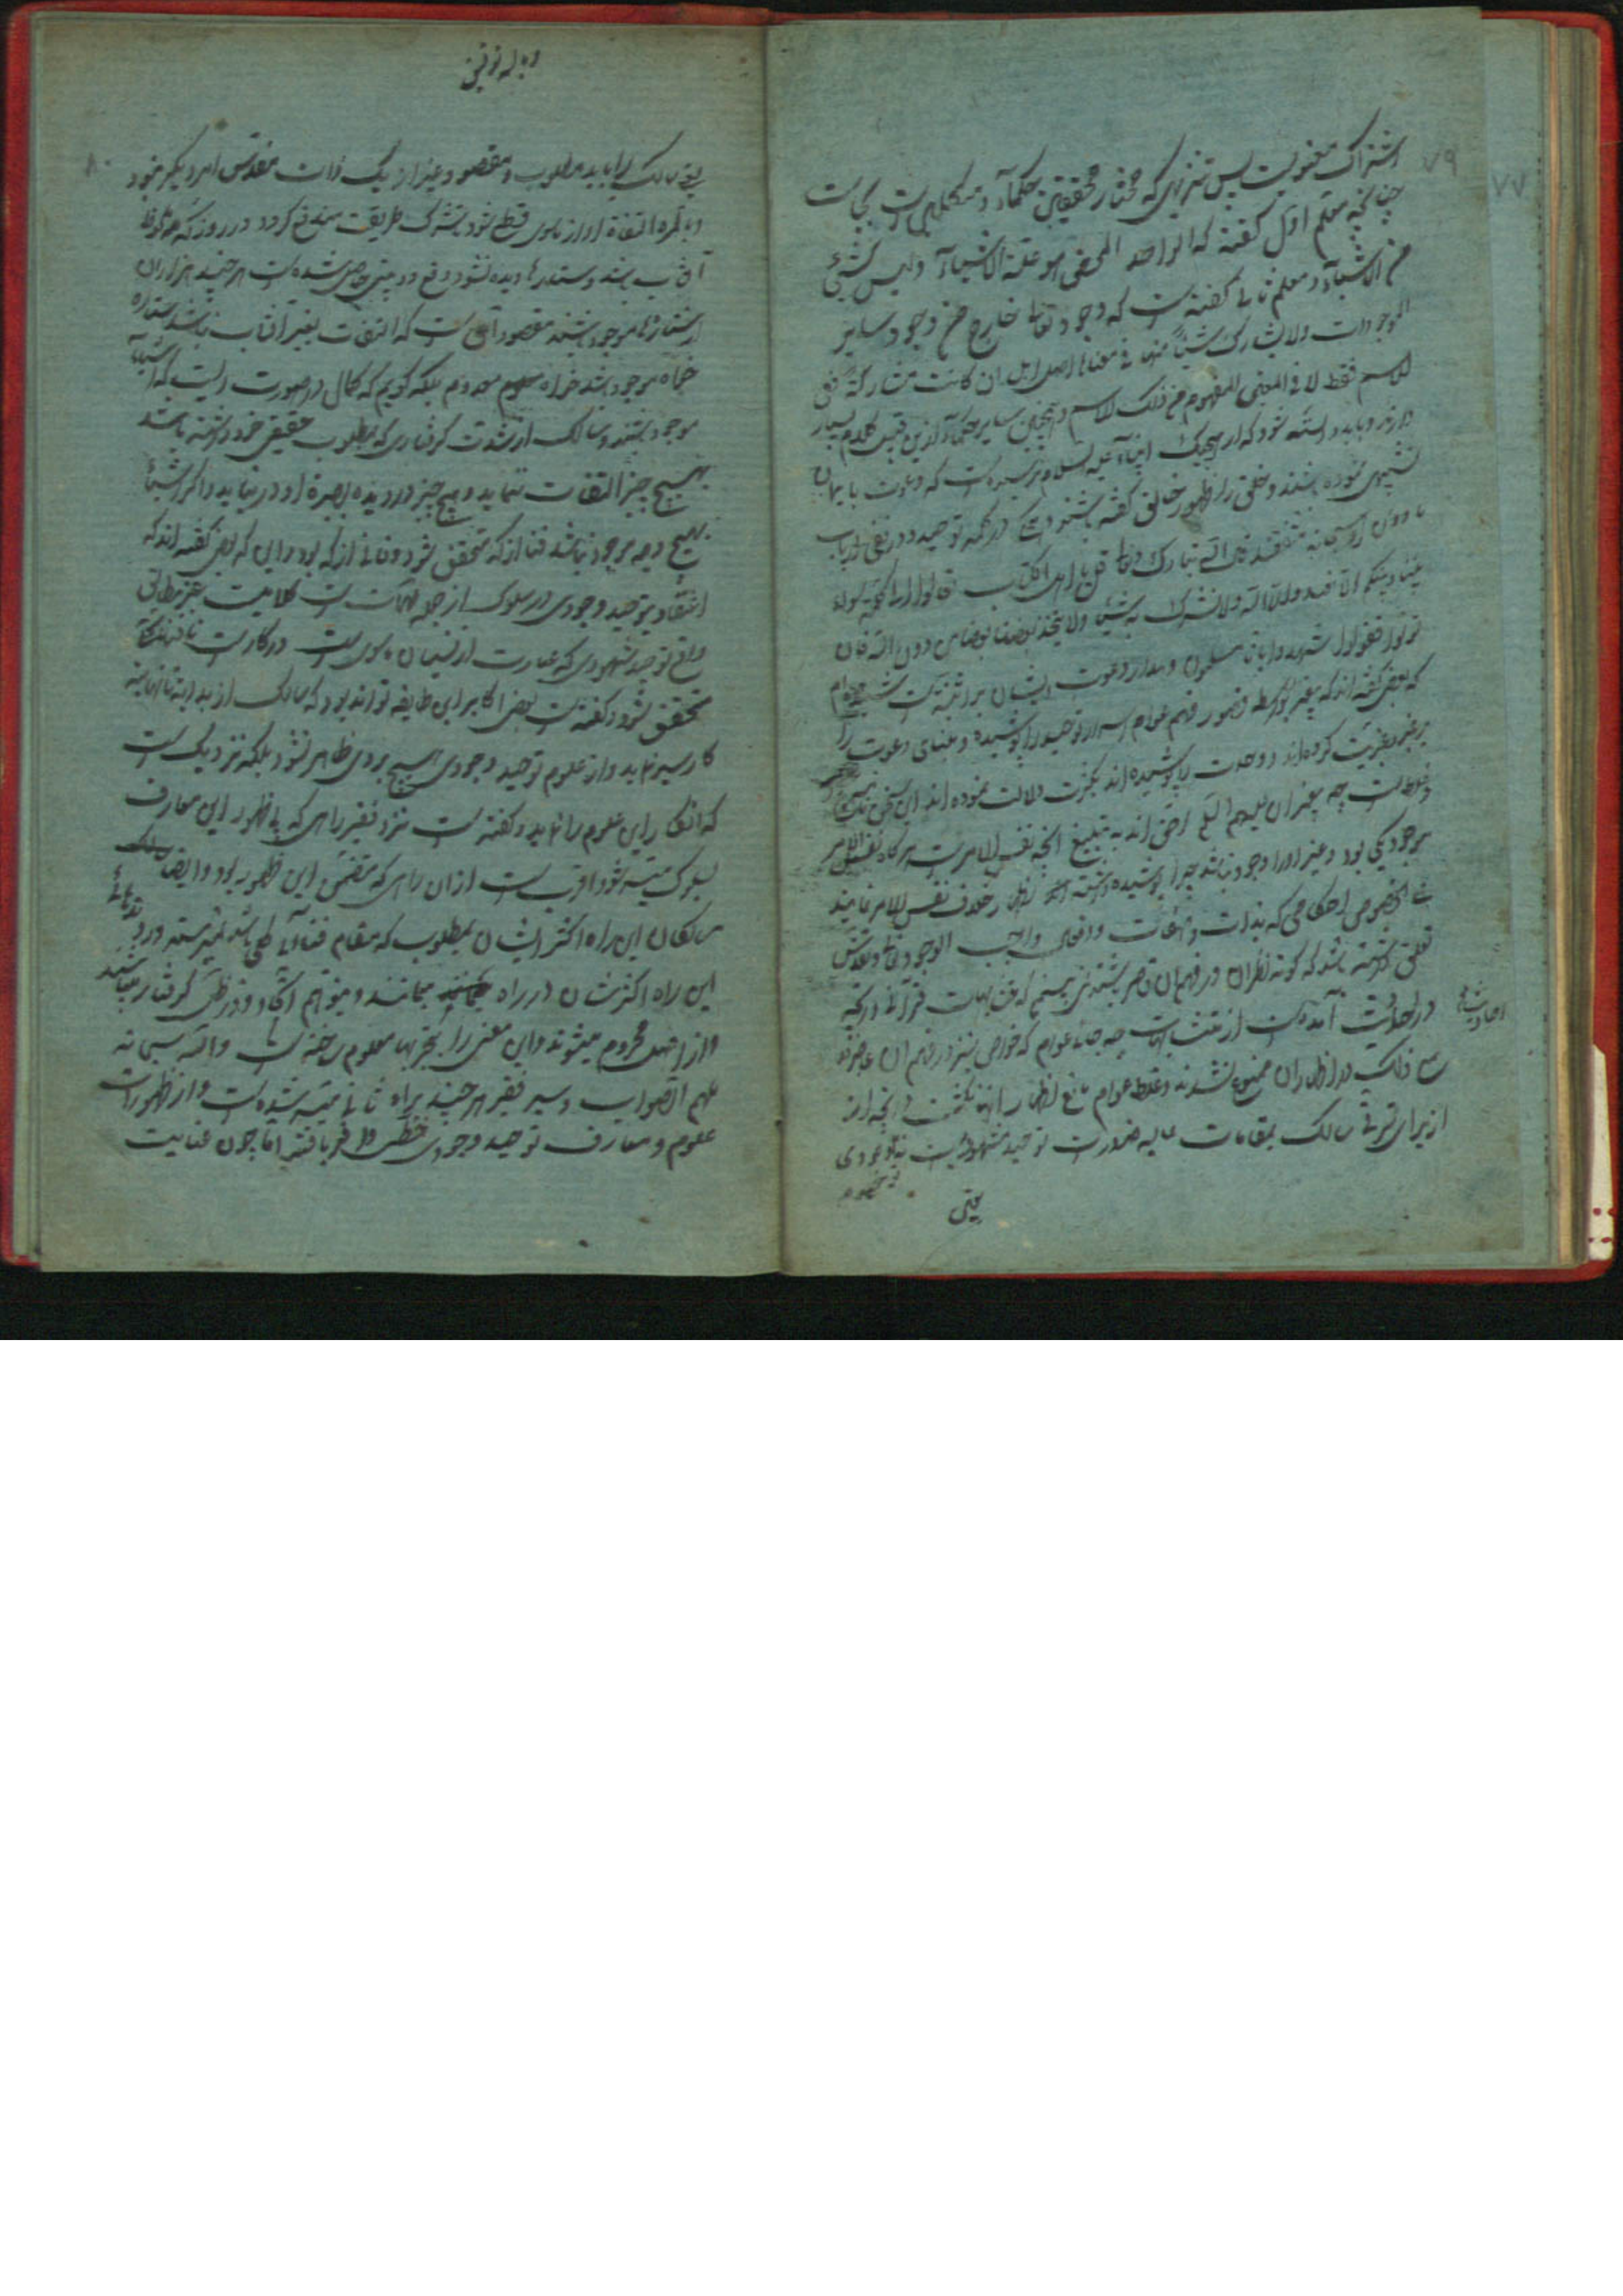 ۷۹
۷۷
اشتراک معنویت پس تنزیهی که مختار محققین حکمآء و متکلمین است
چنانچه معلم اول گفته که الواحد المحض هو علة الاشیآء و لیس کشئ
من الاشیآء و معلم ثانی گفته است که وجوده تعالی خارج من وجود سایر
الموجودات و لا یشارک شیئاً منها فی معناه اصلا بل ان کانت مشارکة ففی
الاسم فقط لا فی المعنی المفهوم من ذلک الاسم و همچنین سایر حکمآء ازین قبیل کلام بسیار
دارند و باید دانسته شود که از هیچیک انبیآء علیه السلام نرسیده است که دعوت بایمان
تشبیهی نموده باشند و خلق را ظهور خالق گفته باشند و همه در کلمه توحید و در نفی ارباب
ما دون او سبحانه متفقند قال الله تبارک و تعالی قل یا اهل الکتاب تعالوا الی کلمة سوآء
بیننا و بینکم الا نعبد الا الله و لا نشرک به شیئا و لا یتخذ بعضنا بعضا من دون الله فان
تولوا فقولوا اشهدوا بانا مسلمون و مدار دعوت ایشان بر
که بعضی گفته اند که پیغمبر بواسطه قصور فهم عوام اسرار توحید را پوشیده و بنای دعوت را
بر غیریت کرده اند و وحدت را پوشیده اند بکثرت دلالت نموده اند این سخن
چه پیغمبران علیهم السلام احق اند به تبلیغ آنچه نفس الامر است هرگاه نفس الامر
موجود یکی بود و غیر او را وجود نباشد چرا پوشیده داشته اند و اظهار خلاف نفس الامر نمایند
علی الخصوص احکامی که بذات و صفات و افعال واجب الوجود تعالی و تقدس
تعلق داشته باشد که کوته نظران در فهم آن قاصر باشند نمی بینم که متشابهات قرآنی و آنچه
در احادیث آمده است از متشابهات چه جای عوام که خواص نیز در فهم آن عاجزند
احادیث
مع ذلک از اظهار آن ممنوع نشدند و غلط عوام مانع اظهار آنها نگشت و آنچه از
از برای ترقی سالک بمقامات عالیه ضرورت توحید شهودیست نه وجودی
یعنی
۸۰
یعنی سالک را باید مطلوب و مقصود غیر از یک ذات مقدس امر دیگر نبود
و بالمره التفاة او از ماسوی قطع شود تا شرک طریقت مندفع گردد در روز که همه
آفتاب بینند و ستاره‌ها دیده نشود دفع دوبینی حاصل شده است هر چند هزاران
ستاره‌ها موجود باشند مقصود آنست که التفات بغیر آفتاب نباشد ستاره
خواه موجود باشد خواه معدوم بلکه گویم که کمال در صورت اینست که اشیآء
موجود باشند و سالک از شدت گرفتاری که بمطلوب حقیقی خود داشته باشد
بهیچ چیز التفات ننماید و هیچ چیز در دیده بصیرة او در نیاید و اگر اشیآء
بهیچ وجه موجود نباشد فنا از که متحقق شود و فانی از که بود و این که بعضی گفته اند که
اعتقاد بتوحید وجودی در سلوک از جمله مهمات است کلامیست غیر مطابق
واقع توحید شهودی که عبارت از نسیان ماسوی است درکارست تا فنا
متحقق شود و گفته است بعضی اکابر این طایفه تواند بود که سالک از بدایة تا نهایة
کار سیر نماید و از علوم توحید وجودی هیچ بروی ظاهر نشود بلکه نزدیک است
که انکار این علوم را نماید و گفته است نزد فقیر راهی که بی ظهور این معارف
بسلوک میسر شود اقرب است از آن راهی که متضمن این ظهور بود و ایضا سالک
سالکان این راه اکثر ایشان بمطلوب که مقام فنا
این راه اکثرشان در راه بمانند و بتوهم اتحاد و در ظل گرفتار باشند
و از اصل محروم میشوند و این معنی را بتجربها معلوم ساخته است و الله سبحانه
ملهم الصواب و سیر فقیر هر چند براه ثانی میسر شده است و از ظهورات
علوم و معارف توحید وجودی حظی وافر یافته اما چون عنایت